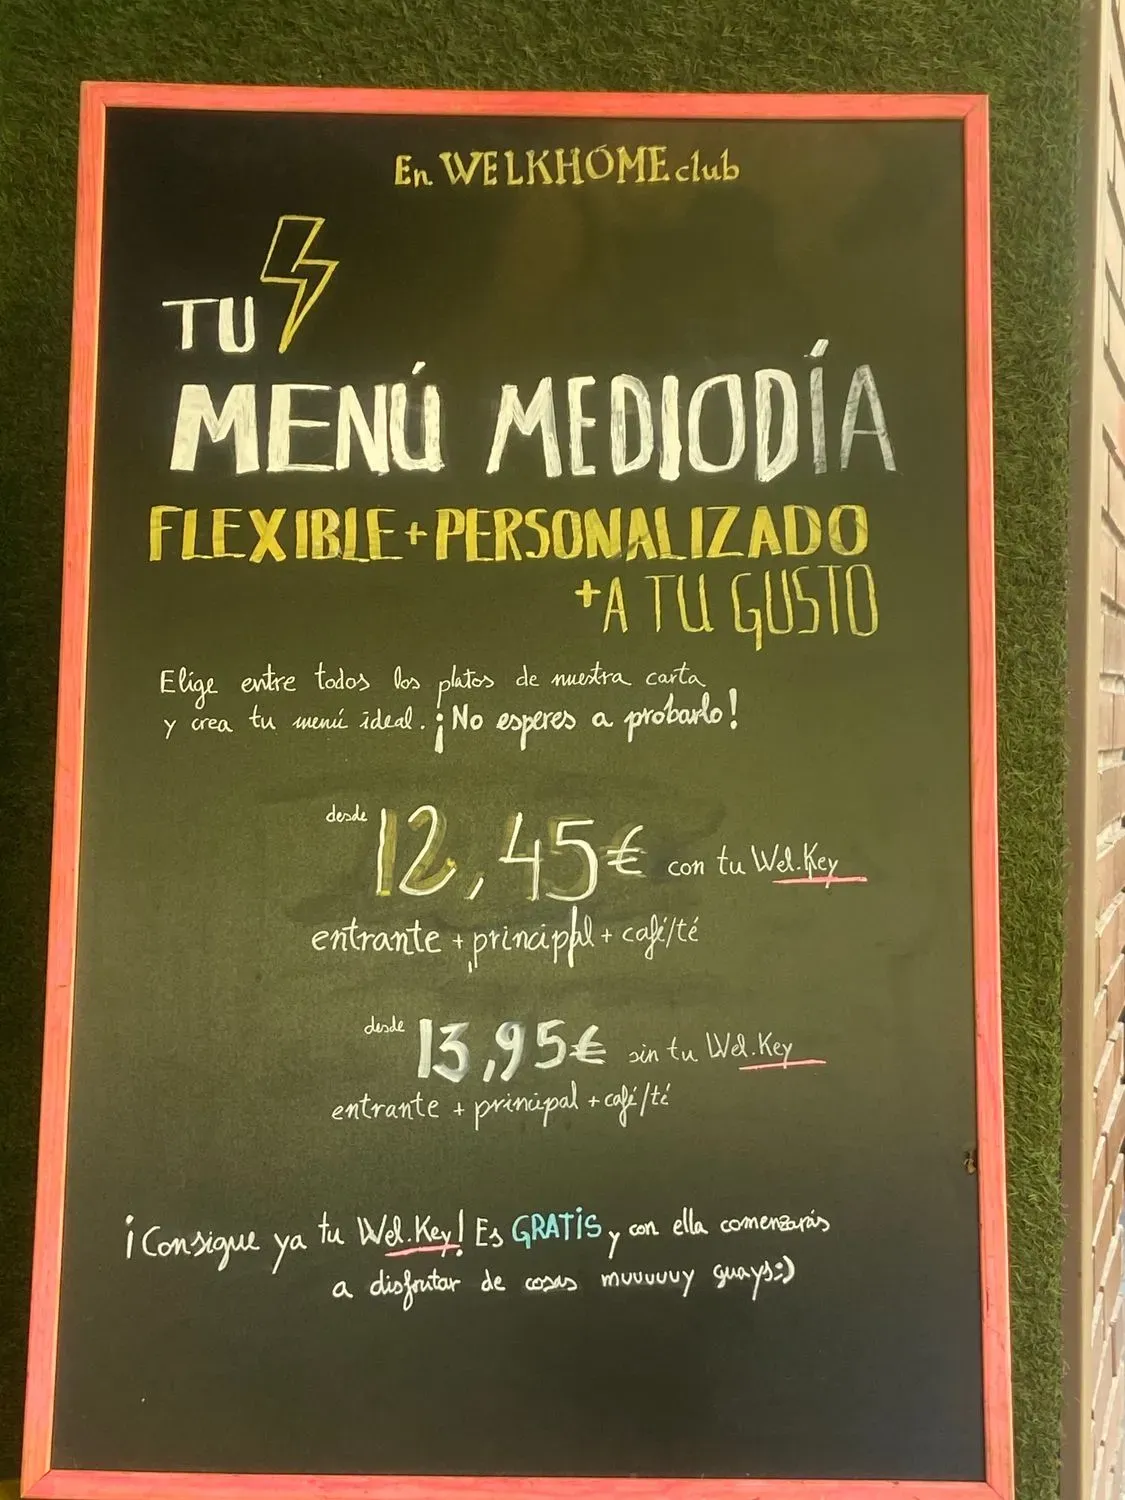 En WELKHOME club
TU
MENÚ MEDIODÍA
FLEXIBLE + PERSONALIZADO
+ A TU GUSTO
Elige entre todos los platos de nuestra carta
y crea tu menú ideal. ¡No esperes a probarlo!
desde 12,45€ con tu Wel.Key
entrante + principal + café/té
desde 13,95€ sin tu Wel.Key
entrante + principal + café/té
¡Consigue ya tu Wel.Key! Es GRATIS y con ella comenzarás
a disfrutar de cosas muuuuuy guays:)